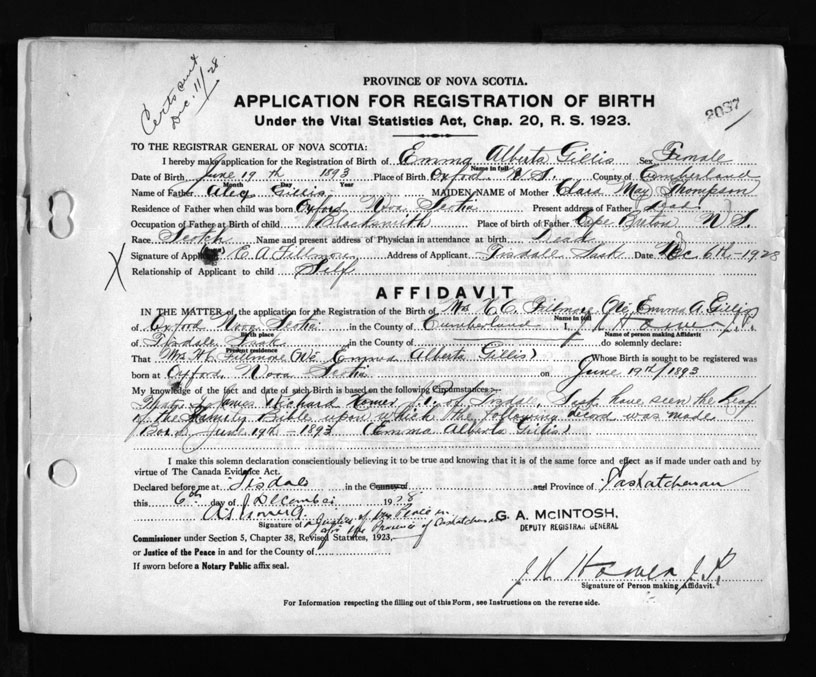 Certs sent
Dec. 11/28
PROVINCE OF NOVA SCOTIA.
APPLICATION FOR REGISTRATION OF BIRTH
Under the Vital Statistics Act, Chap. 20, R. S. 1923.
2037
TO THE REGISTRAR GENERAL OF NOVA SCOTIA:
I hereby make application for the Registration of Birth of Emma Alberta Gillis Sex Female
Name in full
Date of Birth June 19th 1893 Place of Birth Oxford N S. County of Cumberland
Month Day Year
Name of Father Alex Gillis MAIDEN NAME of Mother Clara May Thompson
Residence of Father when child was born Oxford Nova Scotia Present address of Father Dead
Occupation of Father at Birth of child Blacksmith Place of birth of Father Cape Breton N S.
Race Scotch Name and present address of Physician in attendance at birth Dead
X Signature of Applicant E. A. Fillmore Address of Applicant Tisdale Sask Date Dec 6th - 1928
Relationship of Applicant to child Self
AFFIDAVIT
IN THE MATTER of the application for the Registration of the Birth of Mrs Fillmore Emma A. Gillis
Name in full
of Oxford Nova Scotia in the County of Cumberland I, J.
Birth place Name of person making Affidavit
of Tisdale Sask in the County of do solemnly declare:
Present residence
That Mrs Fillmore Emma Alberta Gillis) Whose Birth is sought to be registered was
born at Oxford Nova Scotia on June 19th/1893
My knowledge of the fact and date of such Birth is based on the following Circumstances:
That I James Richard J.P. of Tisdale, Sask have seen the Leaf
of the Family Bible upon which the following record was made
Born June 19th - 1893 (Emma Alberta Gillis)
I make this solemn declaration conscientiously believing it to be true and knowing that it is of the same force and effect as if made under oath and by
virtue of The Canada Evidence Act.
Declared before me at Tisdale in the County of and Province of Saskatchewan
this 6th day of December 1928
Signature of a Justice of the Peace in
and for the Province of Saskatchewan
G. A. McINTOSH,
DEPUTY REGISTRAR GENERAL
Commissioner under Section 5, Chapter 38, Revised Statutes, 1923,
or Justice of the Peace in and for the County of
If sworn before a Notary Public affix seal.
J. P.
Signature of Person making Affidavit.
For Information respecting the filling out of this Form, see Instructions on the reverse side.